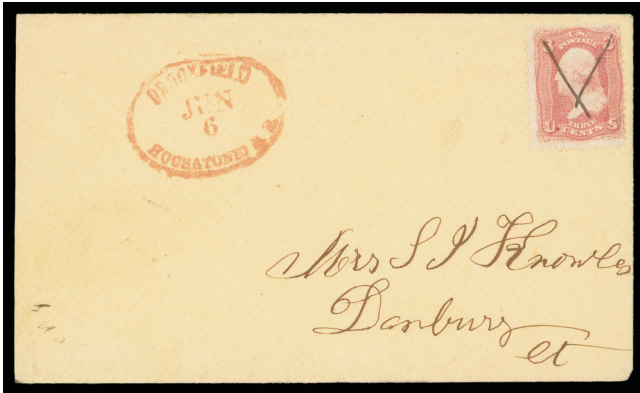 BROOKFIELD
JUN
6
HOUSATONIC R. R.
U.S.
POSTAGE
THREE
U CENTS S
Mrs S J Knowles
Danbury
ct